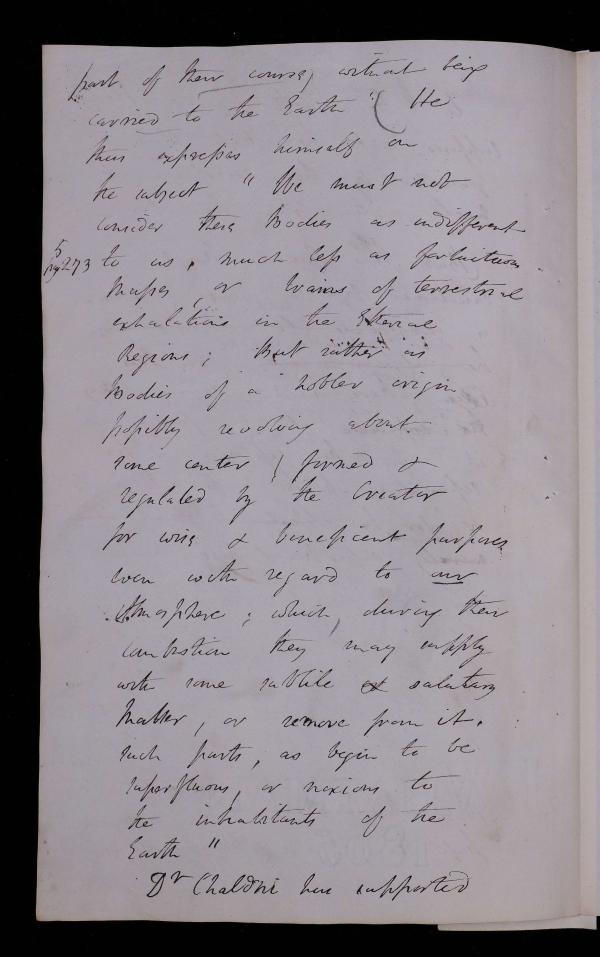 part of their course, without being
carried to the Earth " ( He
thus expresses himself on
the subject " We must not
consider these Bodies as indifferent
to us, much less as fortuitous
273
Masses, or trains of terrestrial
exhalations in the Etherial
Regions; But rather as
Bodies of a nobler origin
possibly revolving about
some center, formed &
regulated by the Creator
for wise & beneficent purposes
even with regard to our
Atmosphere; which, during their
combustion they may supply
with some subtile & salutary
Matter, or remove from it,
such parts, as begin to be
superfluous, or noxious to
the inhabitants of the
Earth "
Dr Chaldni has supported